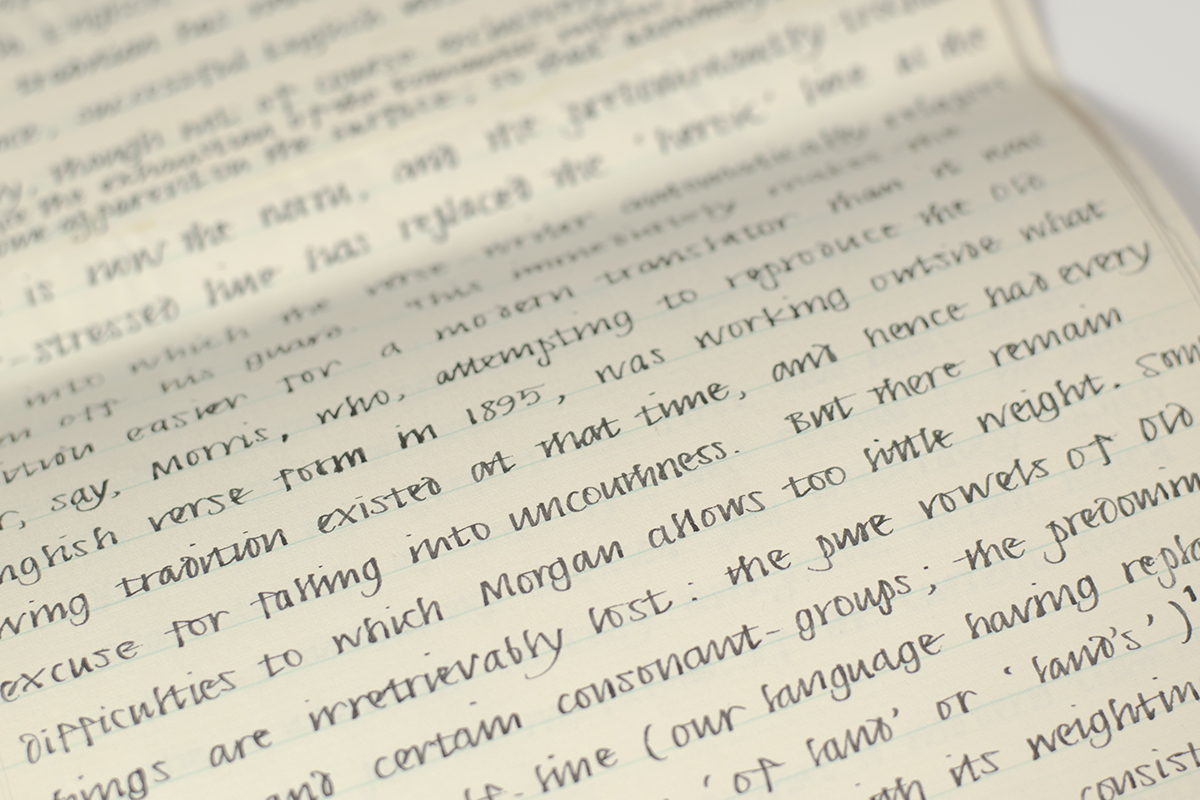 tradition has
successful English
, though not, of course, exclusively
the exhaustion
apparent on the surface, so that
is now the norm, and the predominantly
-stressed line has replaced the 'heroic' line as the
into which the verse writer automatically relapses
off his guard. This immediately makes the
ition easier for a modern translator than it was
r, say, Morris, who, attempting to reproduce the Old
nglish verse form in 1895, was working outside what
ving tradition existed at that time, and hence had every
excuse for falling into uncouthness. But there remain
difficulties to which Morgan allows too little weight. Som
things are irretrievably lost: the pure vowels of Old
and certain consonant-groups; the predomin
lf-line (our language having repla
'of land' or 'land's')'
ith its weightin
consist